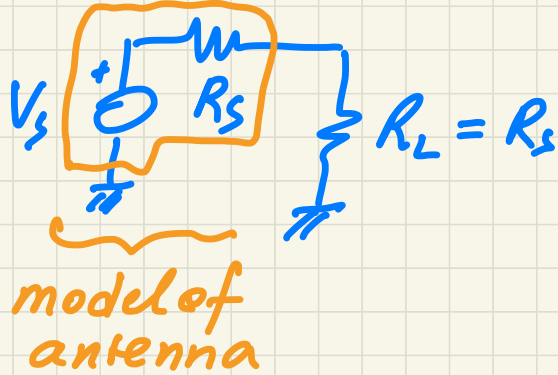 +
Vs
Rs
RL = Rs
model of
antenna